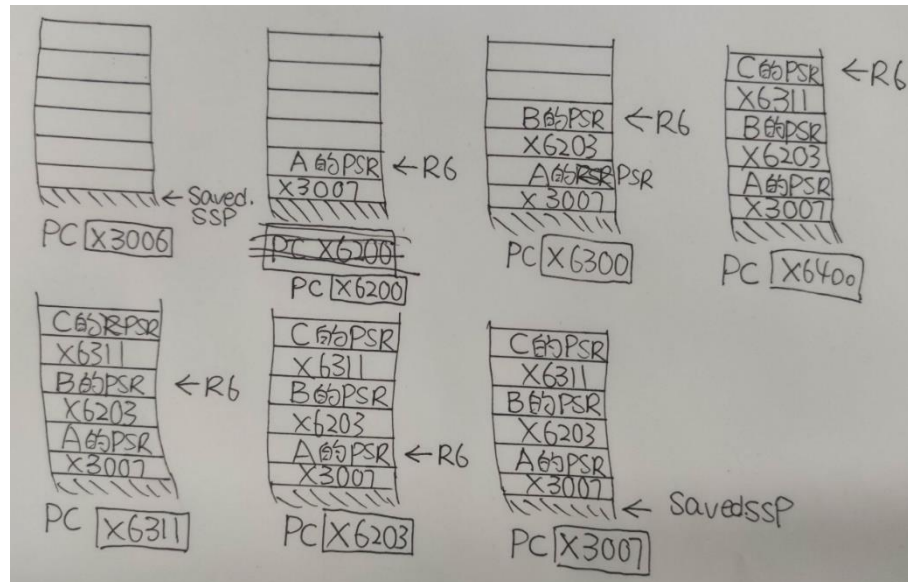 ← Saved.
SSP
PC X3006
A的PSR ← R6
X3007
PC X6200
PC X6200
B的PSR ← R6
X6203
A的PSR
X3007
PC X6300
C的PSR ← R6
X6311
B的PSR
X6203
A的PSR
X3007
PC X6400
C的PSR
X6311
B的PSR ← R6
X6203
A的PSR
X3007
PC X6311
C的PSR
X6311
B的PSR
X6203
A的PSR ← R6
X3007
PC X6203
C的PSR
X6311
B的PSR
X6203
A的PSR
X3007
← SavedSSP
PC X3007